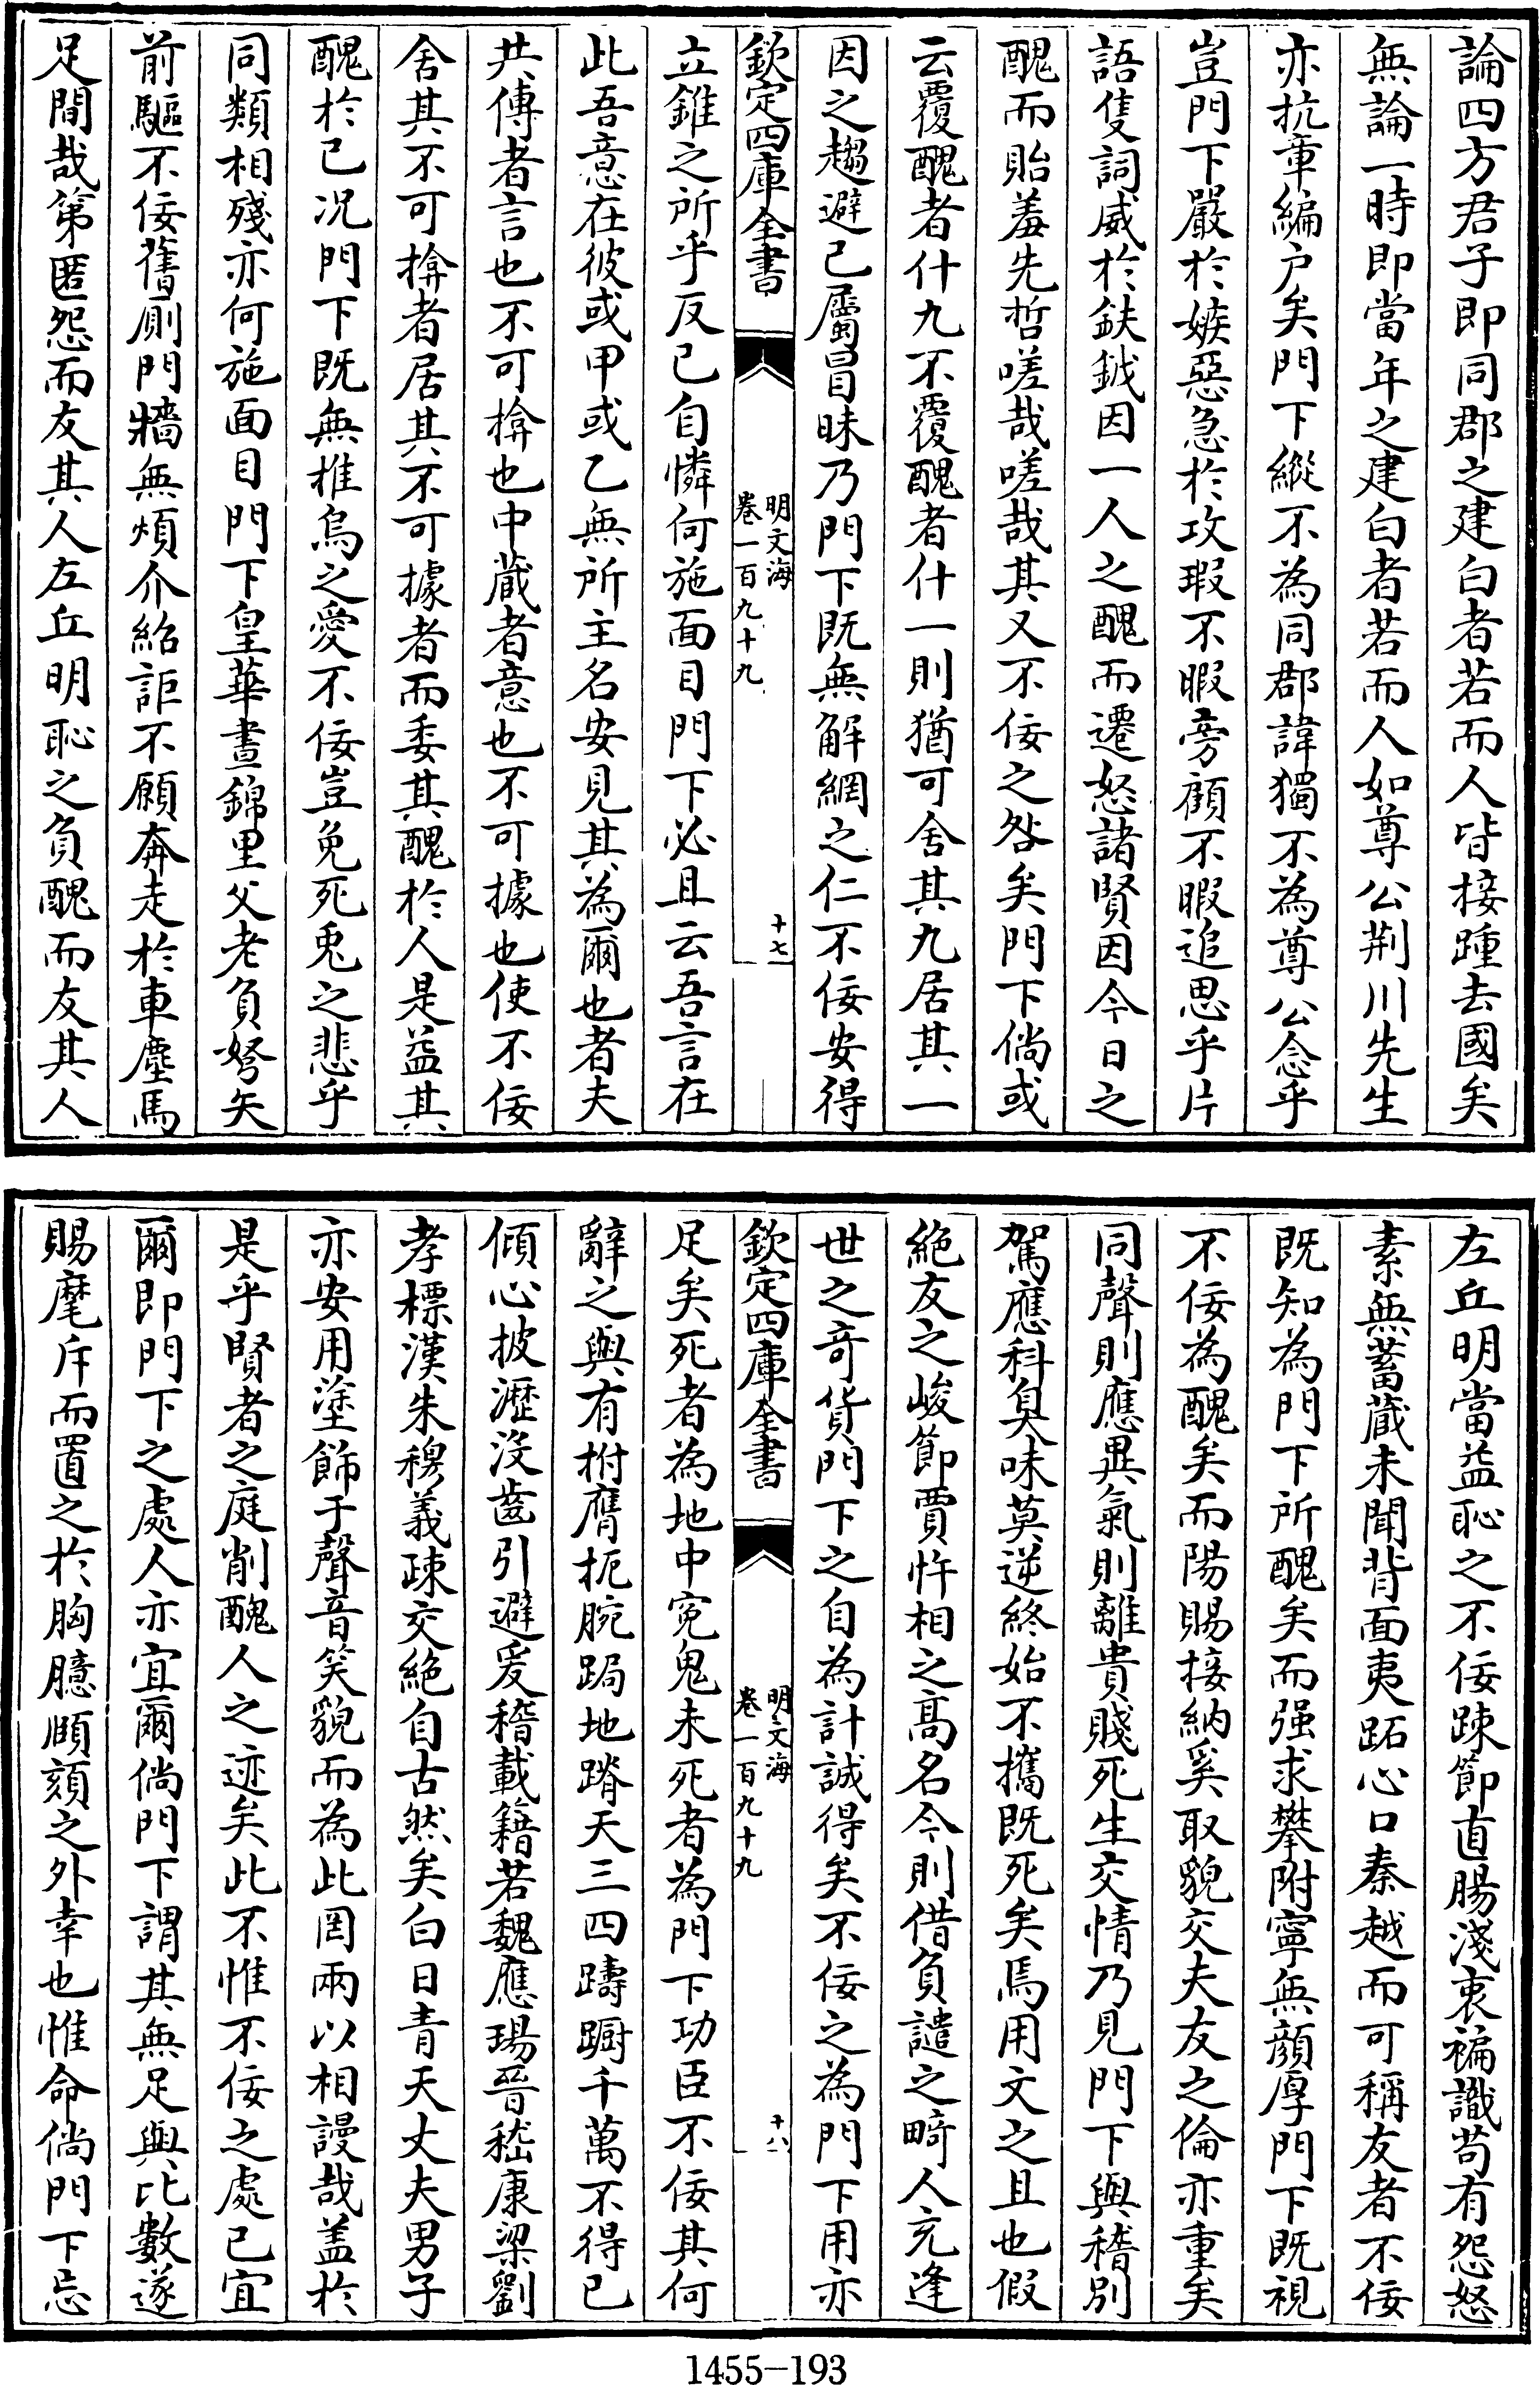 論四方君子即同郡之建白者若而人皆接踵去國矣
無論一時即當年之建白者若而人如尊公荆川先生
亦抗章編户矣門下縱不為同郡諱獨不為尊公念乎
豈門下嚴於嫉惡急於攻瑕不暇旁顧不暇追思乎片
語隻詞威於鈇鉞因一人之醜而遷怒諸賢因今日之
醜而貽羞先哲嗟哉嗟哉其又不佞之咎矣門下倘或
云覆醜者什九不覆醜者什一則猶可舍其九居其一
因之趨避已屬冒昧乃門下既無解網之仁不佞安得
欽定四庫全書
明文海
卷一百九十九
十七
立錐之所乎反已自憐何施面目門下必且云吾言在
此吾意在彼或甲或乙無所主名安見其為爾也者夫
共傳者言也不可揜也中藏者意也不可據也使不佞
舍其不可揜者居其不可據者而委其醜於人是益其
醜於已况門下既無推烏之愛不佞豈免死兎之悲乎
同類相殘亦何施面目門下皇華晝錦里父老負弩矢
前驅不佞舊厠門牆無煩介紹詎不願奔走於車塵馬
足間哉第匿怨而友其人左丘明恥之負醜而友其人
左丘明當益恥之不佞踈節直腸淺衷褊識苟有怨怒
素無蓄藏未聞背面夷跖心口秦越而可稱友者不佞
既知為門下所醜矣而强求攀附寧無顔厚門下既視
不佞為醜矣而陽賜接納奚取貌交夫友之倫亦重矣
同聲則應異氣則離貴賤死生交情乃見門下與稽別
駕應科臭味莫逆終始不攜既死矣焉用文之且也假
絶友之峻節賈忤相之高名今則借負譴之畸人充逢
世之竒貨門下之自為計誠得矣不佞之為門下用亦
欽定四庫全書
明文海
卷一百九十九
十八
足矣死者為地中寃鬼未死者為門下功臣不佞其何
辭之與有拊膺扼腕跼地蹐天三四躊躕千萬不得已
傾心披瀝沒齒引避爰稽載籍若魏應瑒晉嵇康梁劉
孝標漢朱穆義疎交絶自古然矣白日青天丈夫男子
亦安用塗飾于聲音笑貌而為此罔兩以相謾哉盖於
是乎賢者之庭削醜人之迹矣此不惟不佞之處已宜
爾即門下之處人亦宜爾倘門下謂其無足與比數遂
賜麾斥而置之於胸臆頤頦之外幸也惟命倘門下忘
1455-193